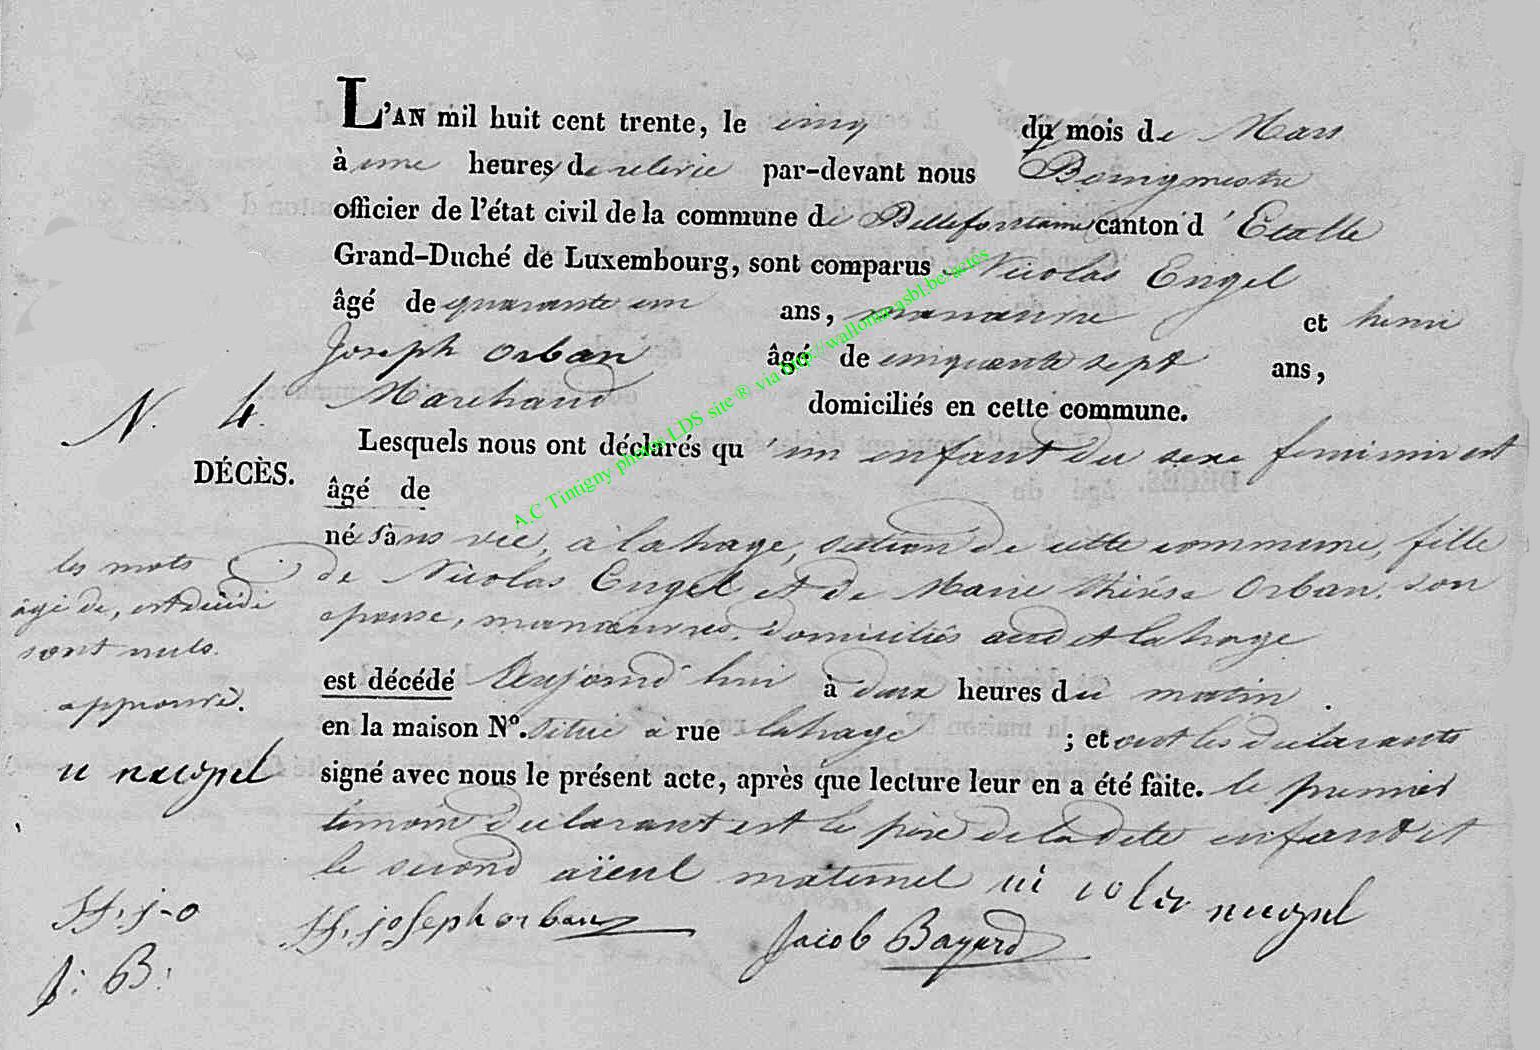 L'AN mil huit cent trente, le cinq du mois de Mars
à une heures de relevée par-devant nous Bourgmestre
officier de l'état civil de la commune de Bellefontaine canton d'Etalle
Grand-Duché de Luxembourg, sont comparus Nicolas Engel
âgé de quarante un ans, manœuvre et henri
Joseph Orban âgé de cinquante sept ans,
Marchand domiciliés en cette commune.
N. 4.
DÉCÈS.
Lesquels nous ont déclarés qu'un enfant du sexe feminin est
âgé de
né sans vie, à lahage, section de cette commune, fille
de Nicolas Engel et de Marie thérése Orban, son
epouse, manœuvres, domiciliés audit lahage
est décédé Aujourd'hui à deux heures du matin.
en la maison Nº. située à rue lahage ; et ont les déclarants
signé avec nous le présent acte, après que lecture leur en a été faite. le premier
témoin déclarant est le père de la dite enfant et
le second aïeul maternel
les mots
âgé de, est décédé
sont nuls.
approuvé.
H. j-o
J: B:
H. joseph orban
Jacob Bayard
A.C Tintigny photos LDS site ® via http://wallonica.asbl.be/actes